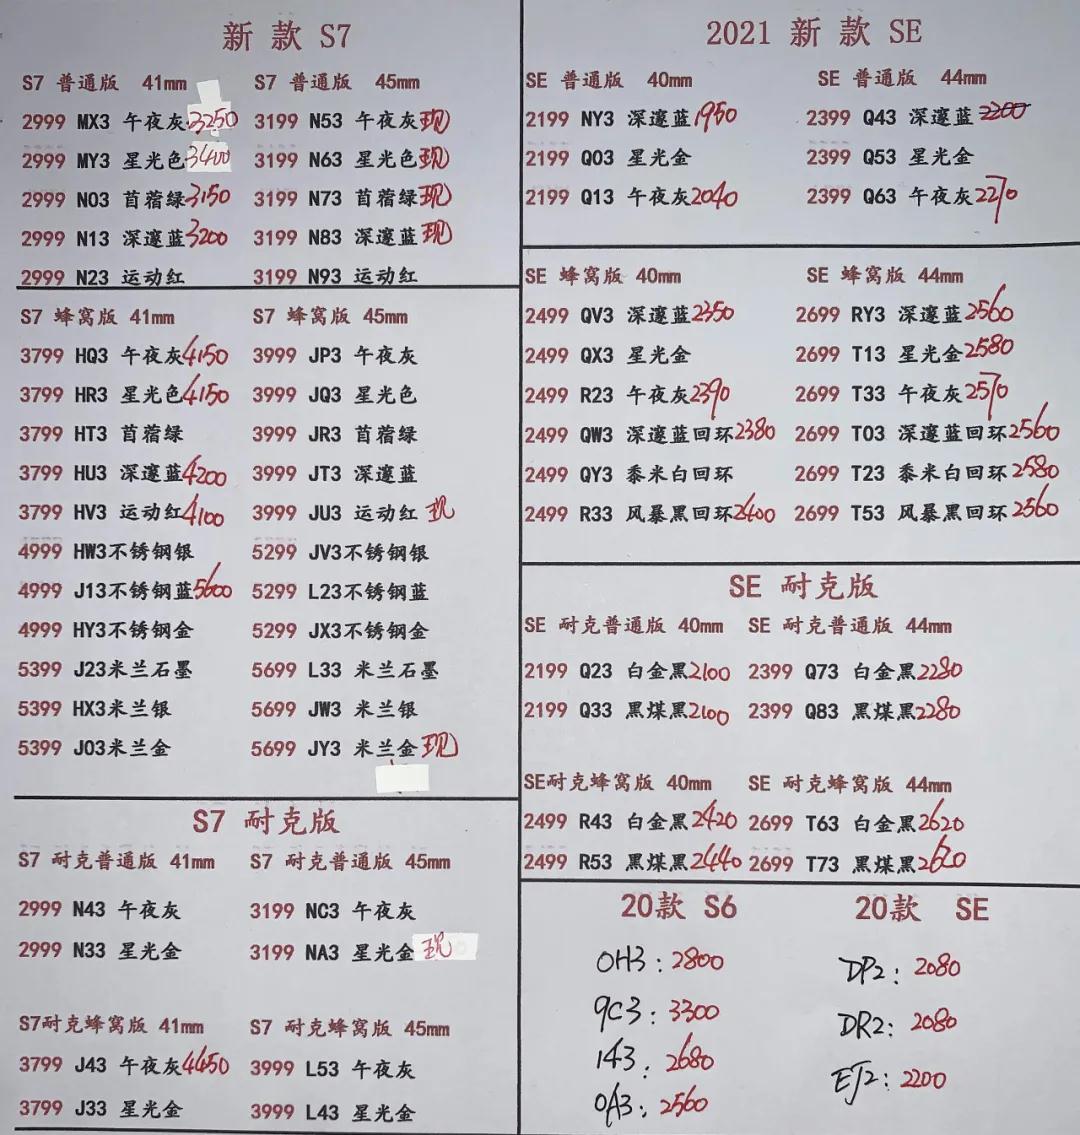 新 款 S7
S7 普通版 41mm
2999 MX3 午夜灰 3250
2999 MY3 星光色 3400
2999 N03 苜蓿绿 3150
2999 N13 深邃蓝 3200
2999 N23 运动红
S7 普通版 45mm
3199 N53 午夜灰 现
3199 N63 星光色 现
3199 N73 苜蓿绿 现
3199 N83 深邃蓝 现
3199 N93 运动红
S7 蜂窝版 41mm
3799 HQ3 午夜灰 4150
3799 HR3 星光色 4150
3799 HT3 苜蓿绿
3799 HU3 深邃蓝 4200
3799 HV3 运动红 4100
4999 HW3不锈钢银
4999 J13不锈钢蓝 5600
4999 HY3不锈钢金
5399 J23米兰石墨
5399 HX3米兰银
5399 J03米兰金
S7 蜂窝版 45mm
3999 JP3 午夜灰
3999 JQ3 星光色
3999 JR3 苜蓿绿
3999 JT3 深邃蓝
3999 JU3 运动红 现
5299 JV3不锈钢银
5299 L23不锈钢蓝
5299 JX3不锈钢金
5699 L33 米兰石墨
5699 JW3 米兰银
5699 JY3 米兰金 现
S7 耐克版
S7 耐克普通版 41mm
2999 N43 午夜灰
2999 N33 星光金
S7 耐克普通版 45mm
3199 NC3 午夜灰
3199 NA3 星光金 现
S7耐克蜂窝版 41mm
3799 J43 午夜灰 4450
3799 J33 星光金
S7 耐克蜂窝版 45mm
3999 L53 午夜灰
3999 L43 星光金
2021 新 款 SE
SE 普通版 40mm
2199 NY3 深邃蓝 1950
2199 Q03 星光金
2199 Q13 午夜灰 2040
SE 普通版 44mm
2399 Q43 深邃蓝 2200
2399 Q53 星光金
2399 Q63 午夜灰 2270
SE 蜂窝版 40mm
2499 QV3 深邃蓝 2350
2499 QX3 星光金
2499 R23 午夜灰 2390
2499 QW3 深邃蓝回环 2380
2499 QY3 黍米白回环
2499 R33 风暴黑回环 2400
SE 蜂窝版 44mm
2699 RY3 深邃蓝 2560
2699 T13 星光金 2580
2699 T33 午夜灰 2570
2699 T03 深邃蓝回环 2560
2699 T23 黍米白回环 2580
2699 T53 风暴黑回环 2560
SE 耐克版
SE 耐克普通版 40mm
2199 Q23 白金黑 2100
2199 Q33 黑煤黑 2100
SE 耐克普通版 44mm
2399 Q73 白金黑 2280
2399 Q83 黑煤黑 2280
SE耐克蜂窝版 40mm
2499 R43 白金黑 2420
2499 R53 黑煤黑 2440
SE 耐克蜂窝版 44mm
2699 T63 白金黑 2620
2699 T73 黑煤黑 2620
20款 S6
0H3: 2800
9C3: 3300
143: 2680
0A3: 2560
20款 SE
DP2: 2080
DR2: 2080
EJ2: 2200